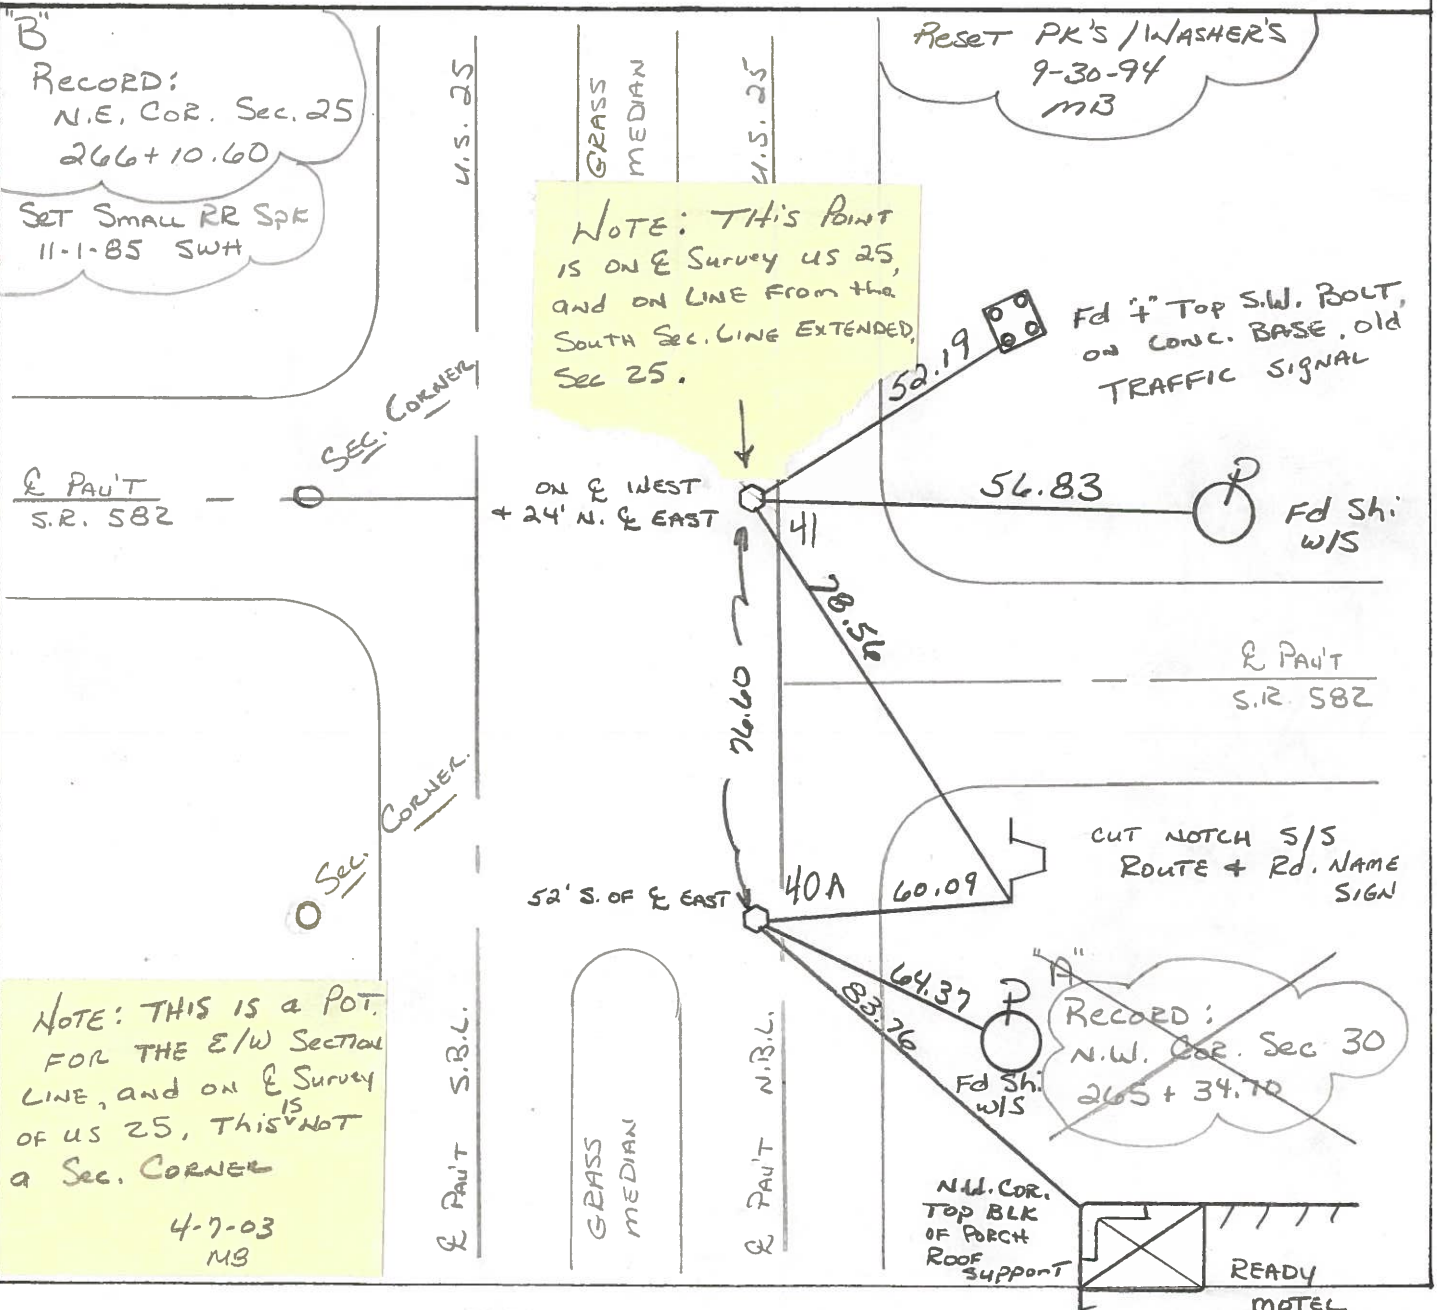 "B"
RECORD:
N.E. COR. Sec. 25
266+10.60
SET SMALL RR SPK
11-1-85 SWH
U.S. 25
GRASS
MEDIAN
U.S. 25
RESET PK'S / WASHER'S
9-30-94
MB
NOTE: THIS POINT
IS ON ℄ Survey US 25,
and ON LINE From the
SOUTH Sec. LINE EXTENDED,
Sec 25.
52.19
Fd "+" TOP S.W. BOLT,
ON CONC. BASE, old
TRAFFIC SIGNAL
SEC. CORNER
℄ PAV'T
S.R. 582
ON ℄ WEST
+ 24' N. ℄ EAST
41
56.83
P
Fd Sh:
W/S
78.56
76.60
℄ PAV'T
S.R. 582
SEC. CORNER.
CUT NOTCH S/S
ROUTE + Rd. NAME
SIGN
52' S. OF ℄ EAST
40A
60.09
64.37
83.76
P
Fd Sh:
W/S
"A"
RECORD:
N.W. COR. Sec 30
265 + 34.70
NOTE: THIS IS a POT.
FOR THE E/W SECTION
LINE, and ON ℄ Survey
OF US 25, This IS NOT
a Sec. CORNER
4-7-03
MB
℄ PAV'T S.B.L.
GRASS
MEDIAN
℄ PAV'T N.B.L.
N.W. COR.
TOP BLK
OF PORCH
ROOF
SUPPORT
READY
MOTEL